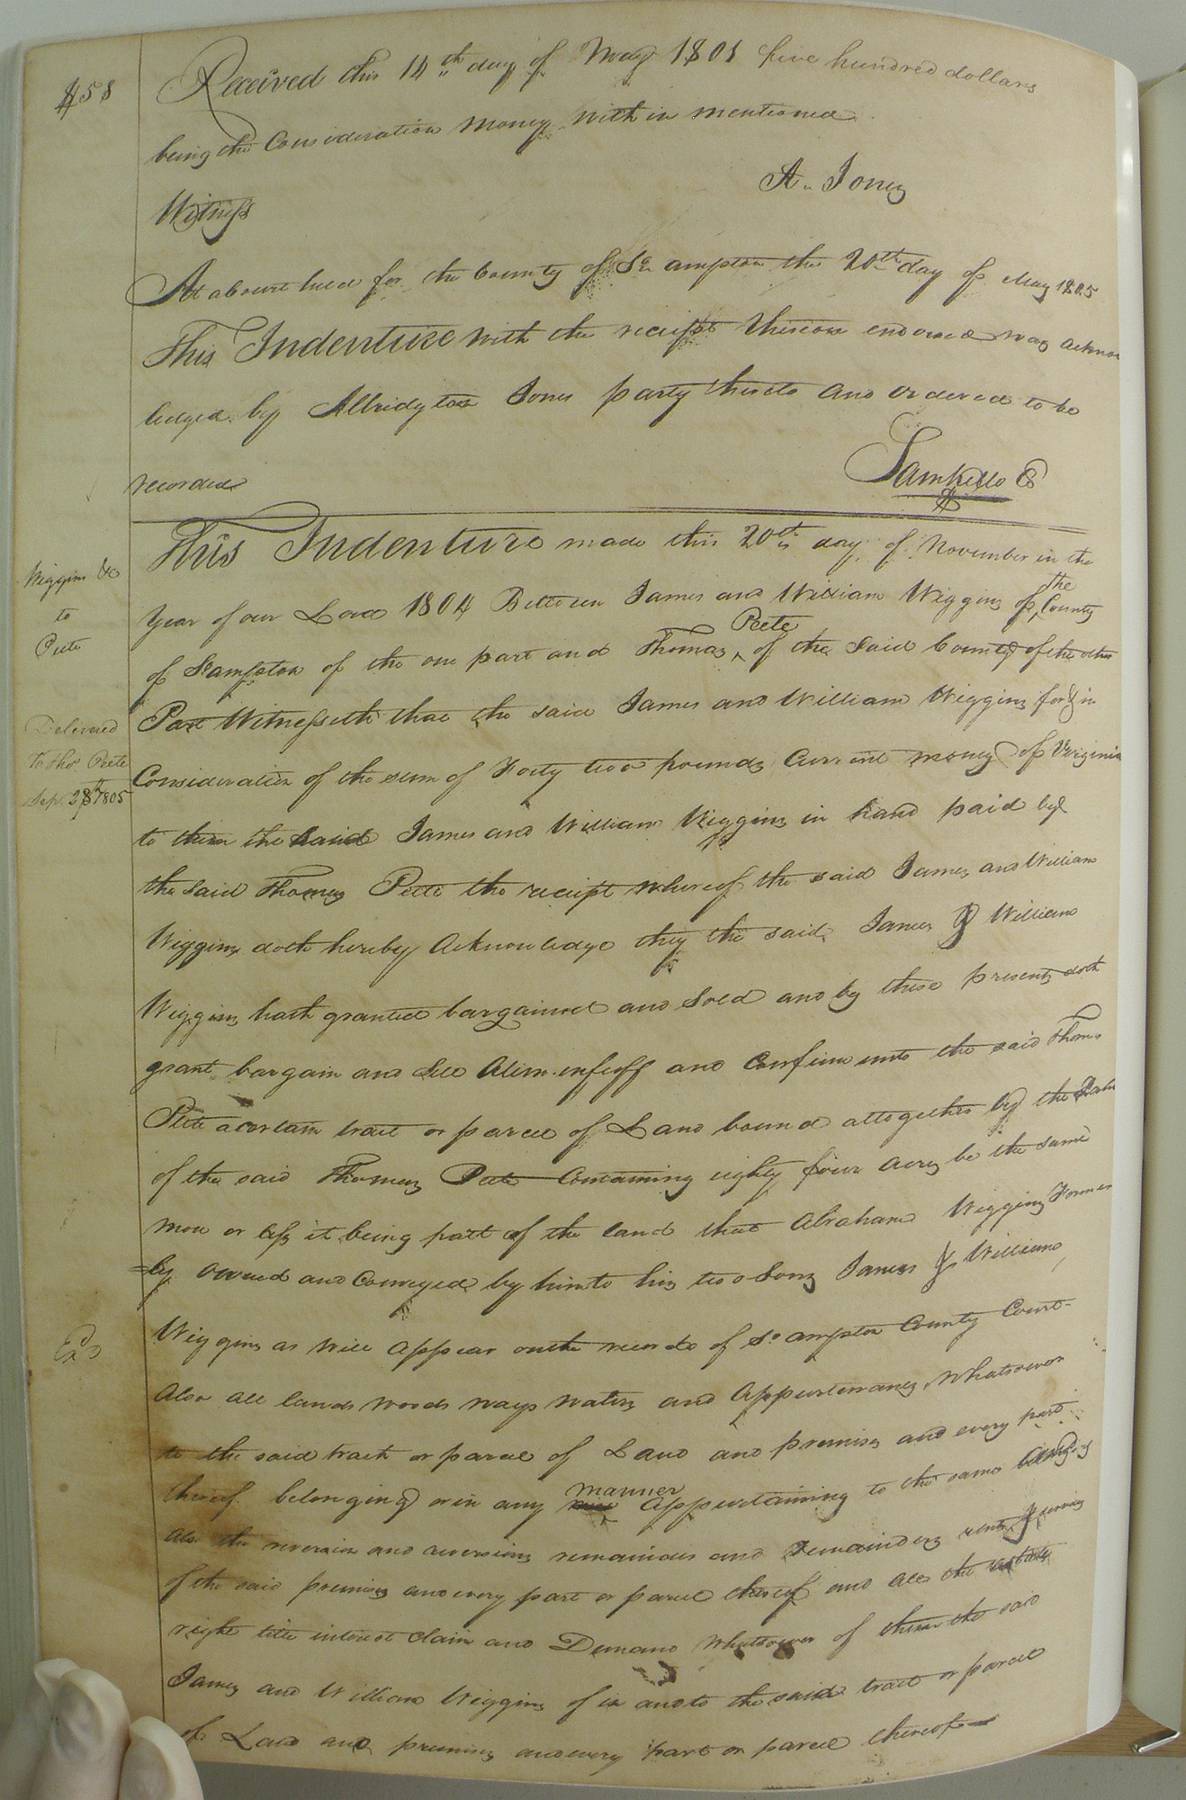 458
Received this 14th day of May 1805 five hundred dollars
being the Consideration money with in mentioned.
A. Jones
Witness
At a Court held for the County of So ampton the 20th day of May 1805
This Indenture with the receipt thereon endorsed was acknow
ledged by Albridgton Jones party thereto and ordered to be
recorded
Saml Kello C
This Indenture made this 20th day of November in the
Wiggins &c
to
Peete
Year of our Lord 1804 Between James and William Wiggins of the County
of S.ampton of the one part and Thomas Peete of the Said County of the other
Part Witnesseth that the said James and William Wiggins for & in
Delivered
To Thos Peete
Sept 28th 1805
Consideration of the sum of Forty two pounds Current money of Virginia
to them the said James and William Wiggins in hand paid by
the said Thomas Peete the receipt whereof the said James and William
Wiggins doth hereby Acknowledge they the said James & William
Wiggins hath granted bargained and Sold and by these presents doth
grant bargain and Sell Alien infeoff and Confirm unto the said Thomas
Peete a certain tract or parcel of Land bound altogether by the
of the said Thomas Peete Containing eighty four acres be the same
more or less it being part of the land that Abraham Wiggins Former
=ly owned and Conveyed by him to his two Sons James & William
Wiggins as will appear on the records of So ampton County Court-
Exd
Also all lands woods ways waters and Appurtenances Whatsoever
to the said tract or parcel of Land and premises and every part
thereof belonging or in any manner Appurtaining to the same belonging
also the reversion and reversions remainder and Remainders rents & services
of the said premises and every part or parcel thereof and all the estate
right title interest claim and Demand Whatsoever of them the said
James and William Wiggins of in and to the said tract or parcel
of Land and premises and every part or parcel thereof